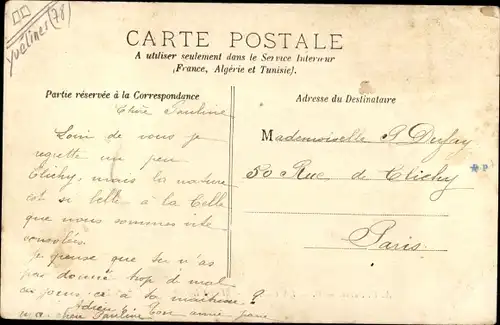 Yvelines (78)
CARTE POSTALE
A utiliser seulement dans le Service Interieur
(France, Algérie et Tunisie).
Partie réservée à la Correspondance
Adresse du Destinataire
Chère Pauline
Loin de vous je
regrette un peu
Clichy, mais la nature
est si belle à la Celle
que nous sommes vite
consolées.
Je pense que tu n'as
pas donné trop de mal
ces jours-ci à ta maîtresse ?
Adieu
chère Pauline Ton amie
Mademoiselle P Dufay
50 Rue de Clichy
Paris.